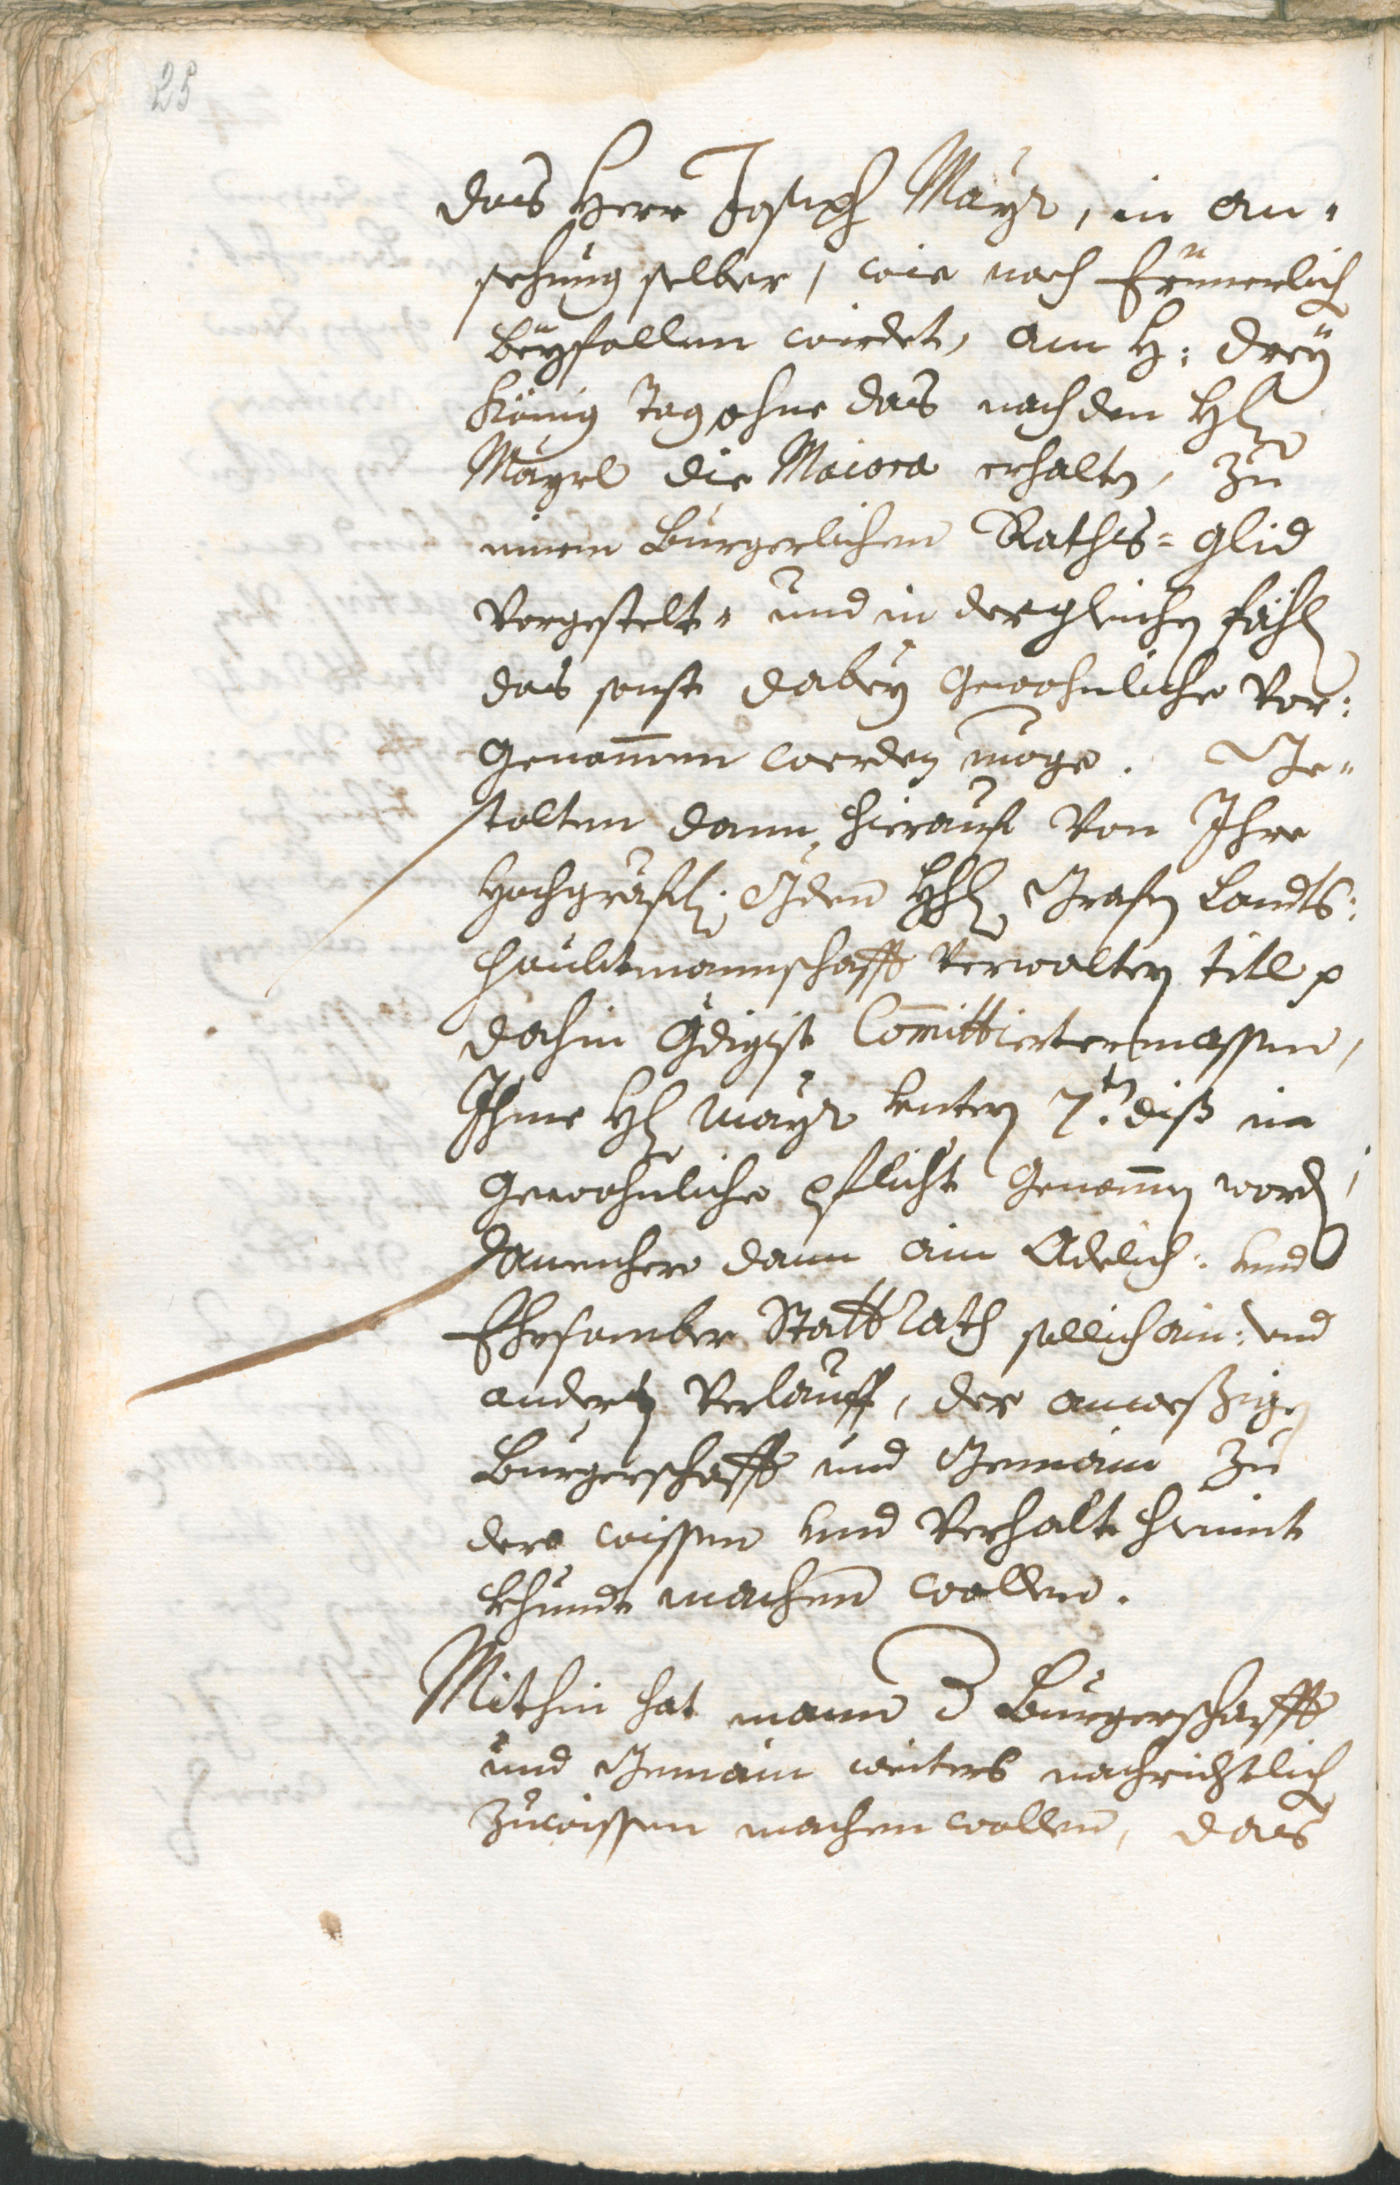 25
das Herr Joseph Mayr, in an¬
sehung selber, wie noch Erinnerlich
beyfallen wirdet, am H: drey
König tag ohne das nach den H:
Mayrl die Maiora erhalten, zu
einem Burgerlichen Raths=glid
vorgestelt, und in dergleichen fähl
das sonst dabey gewohnliche vor:
genommen werden möge. Ge¬
stalten dann hierauf von Ihro
Hochgräfl: Gden H: Grafen Landts:
haubtmannschafft Verwaltern titl p
dahin Gdigist Committiertermassen,
Ihme H: Mayr untern 7.ten diß in
gewohnliche pflicht genommen worden,
dannenhero dann ain Adelich: und
Ehrsamber Stattrath sollich ain: und
anderten Verlauff, der anwesßigen
Burgerschafft und Gemain zu
dero wissen und Verhalt hiemit
khundt machen wollen.
Mithin hat mann d Burgerschafft
und Gemain weiters nachrichtlich
zuwissen machen wollen, das